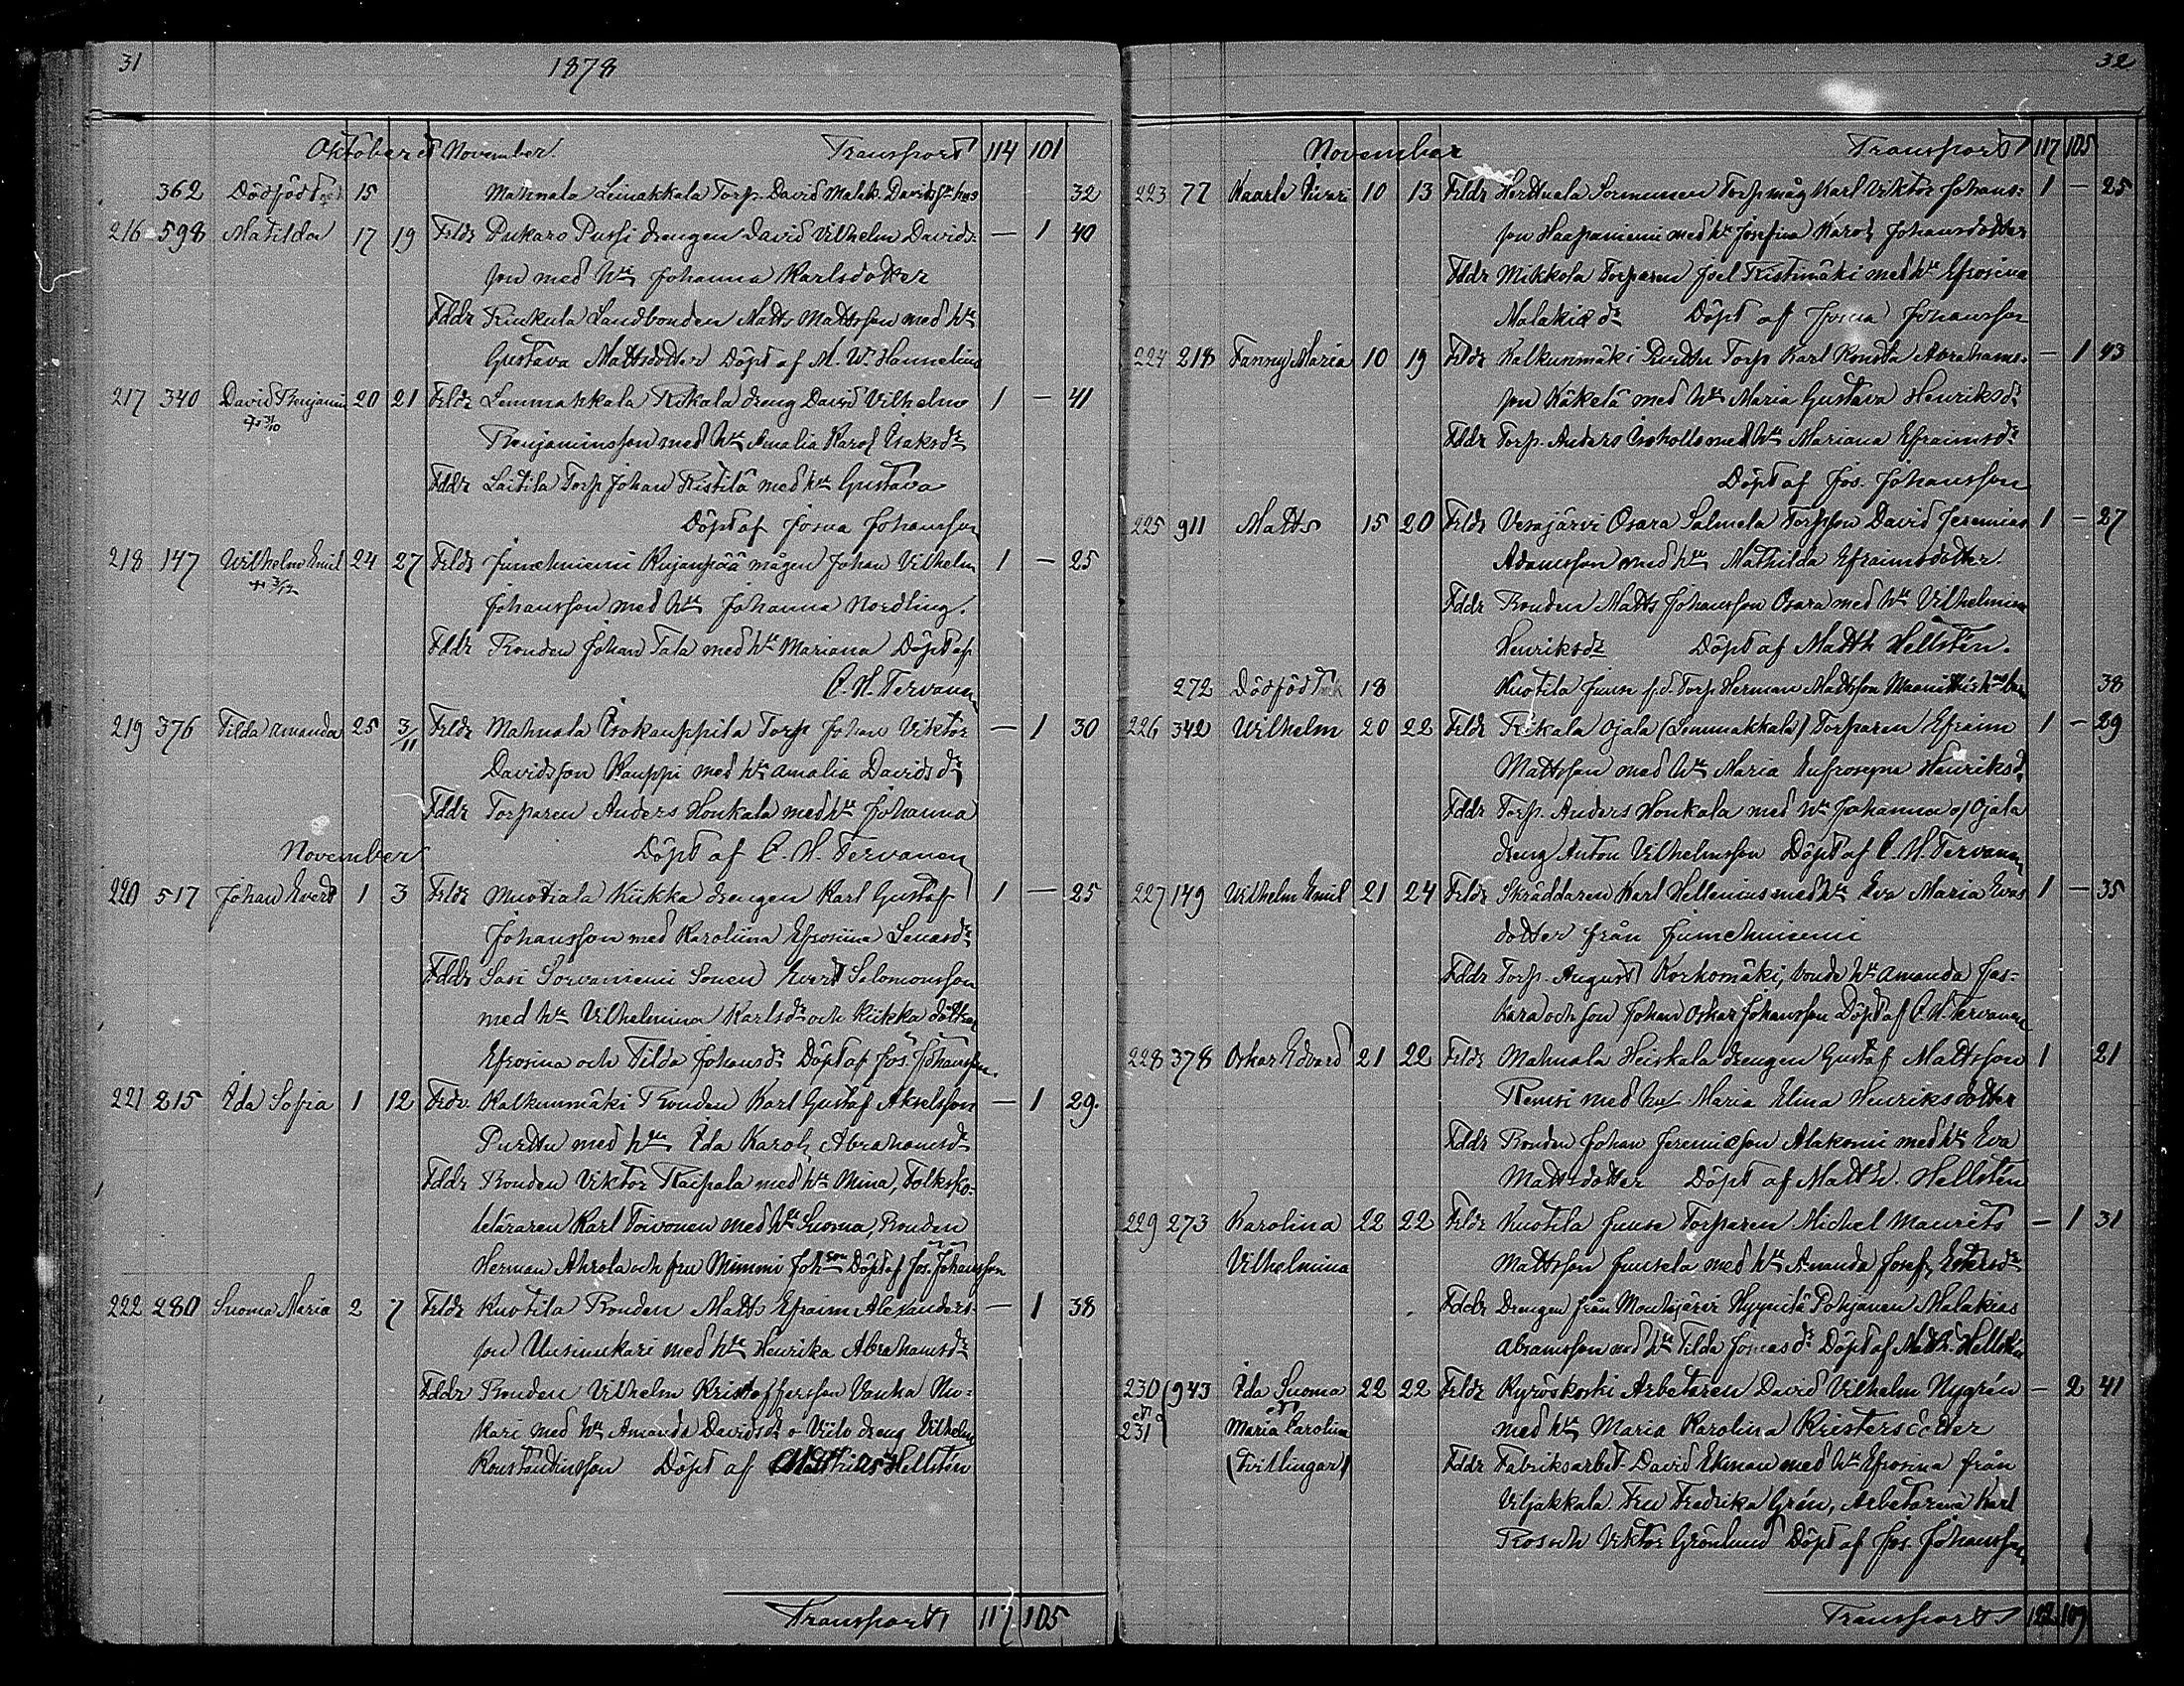 31
1878
Oktober et November. Transport 114 101
362 Dödfödt 15 Mahnala Leinakkala Torp. David Malak. Davidss. hus 32
216 598 Matilda 17 19 Frldr Pukaro Pussi drengen David Vilhelm Davids- — 1 40
son med hu Johanna Karlsdotter
Fddr Rinkula Landbonden Matts Mattsson med hu
Gustava Mattsdotter Döpt af M. W. Hannelius
217 340 David Benjamin 20 21 Frldr Lemmakkala Rikala dreng David Vilhelm 1 — 41
Benjaminsson med hu Amalia Karol. Isaksdr
Fddr Laitila Torp Johan Ristilä med hu Gustava
Döpt af Josua Johansson
218 147 Vilhelm Emil 24 27 Frldr Jumehniemi Kujanpää mågen Johan Vilhelm 1 — 25
3/12
Johansson med hu Johanna Nordling.
Fddr Bonden Johan Tala med hu Mariana Döpt af
C. H. Tervanen
219 376 Tilda Amanda 25 3/11 Frldr Mahnala Isokauppila Torp Johan Viktor — 1 30
Davidsson Kauppi med hu Amalia Davidsdr
Fddr Torparen Anders Honkala med hu Johanna
November Döpt af C. H. Tervanen
220 517 Johan Evert 1 3 Frldr Muotiala Kiikka drengen Karl Gustaf 1 — 25
Johansson med Karoliina Efrosiina Enasdr
Fddr Sasi Sorvaniemi Sonen Evert Salomonsson
med hu Vilhelmina Karlsdr och Kiikka döttrar
Efrosina och Tilda Johansdr Döpt af Jos. Johansson.
221 215 Ida Sofia 1 12 Frldr. Kalkunmäki Bonden Karl Gustaf Akselsson — 1 29.
Purttu med hu Ida Karol. Abrahamsdr
Fddr Bonden Viktor Raipala med hu Mina, Folksko-
leläraren Karl Toivonen med hu Suoma, Bonden
Herman Ahrola och fru Mimmi Johsson Döpt af Jos. Johansson
222 280 Suoma Maria 2 7 Frldr Kuotila Bonden Matts Efraim Alexanders- — 1 38
son Uusinukari med hu Henrika Abrahamsdr
Fddr Bonden Vilhelm Kristoffersson Vanha Nu-
kari med hu Amanda Davidsdr o Viilo dreng Vilhelm
Konstantinsson Döpt af Matthias Hellstén
Transport 117 105
32
November Transport 117 105
223 77 Kaarle Iivari 10 13 Frldr Herttuala Sormunen Torp måg Karl Viktor Johans- 1 — 25
son Haapaniemi med hu Josefina Karol. Johansdotter
Fddr Mikkola Torparen Joel Ristimäki med hu Efrosina
Malakiædr Döpt af Josua Johansson
224 218 Fanny Maria 10 19 Frldr Kalkunmäki Purttu Torp Karl Konsta Abrahams- — 1 43
son Käkelä med hu Maria Gustava Henriksdr
Fddr Torp. Anders Isoholto med hu Mariana Efraimsdr
Döpt af Jos. Johansson
225 911 Matts 15 20 Frldr Vesajärvi Osara Salmela Torpson David Jeremias 1 — 27
Adamsson med hu Mathilda Efraimsdotter.
Fddr Bonden Matts Johansson Osara med hu Vilhelmina
Henriksdr Döpt af Matth Hellstén.
272 Dödfödt 18 Kuotila Junse f.d. Torp Herman Mattsson 38
226 342 Vilhelm 20 22 Frldr Rikala Ojala (Lemmakkala) Torparen Efraim 1 — 29
Mattsson med hu Maria Eufrosyna Henriksdr
Fddr Torp. Anders Honkala med hu Johanna o/ Ojala
dreng Anton Vilhelmsson Döpt af C. H. Tervanen
227 149 Vilhelm Emil 21 24 Frldr Skräddaren Karl Hellenius med hu Eva Maria Evas 1 — 35
dotter från Jumehniemi
Fddr Torp. August Korkomäki, bonde hu Amanda Jas-
kara och son Johan Oskar Johansson Döpt af C. H. Tervanen
228 378 Oskar Edvard 21 22 Frldr Mahnala Heiskala drengen Gustaf Mattsson 1 21
Remsi med hu Maria Elina Henriksdotter
Fddr Bonden Johan Jeremiæson Alakomi med hu Eva
Mattsdotter Döpt af Matth. Hellstén
229 273 Karolina 22 22 Frldr Kuotila Junse Torparen Michel Maurits — 1 31
Vilhelmina Mattsson Junsela med hu Amanda Josef. Estersdr
Fddr Drengen från Mouhijärvi Hyynilä Pohjanen Malakias
Abramsson med hu Tilda Josuasdr Döpt af Matth. Hellstén
230 943 Ida Suoma 22 22 Frldr Kyröskoski Arbetaren David Vilhelm Nygrén — 2 41
et 231 et Maria Carolina med hu Maria Karolina Kristersdotter
(Tvillingar) Fddr Fabriksarbet. David Ekman med hu Efrosina från
Viljakkala. Fru Fredrika Grén, Arbetarena Karl
Ros och Viktor Grönlund Döpt af Jos. Johansson
Transport 122 109